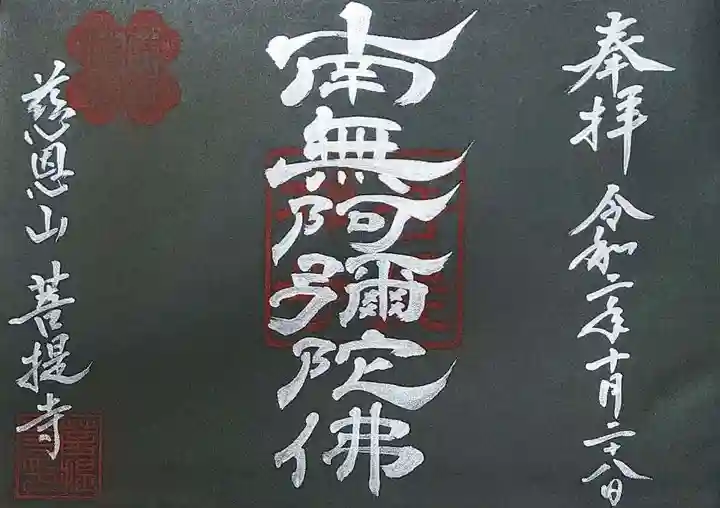 奉拝 令和二年十月二十八日
南無阿彌陀佛
慈恩山 菩提寺